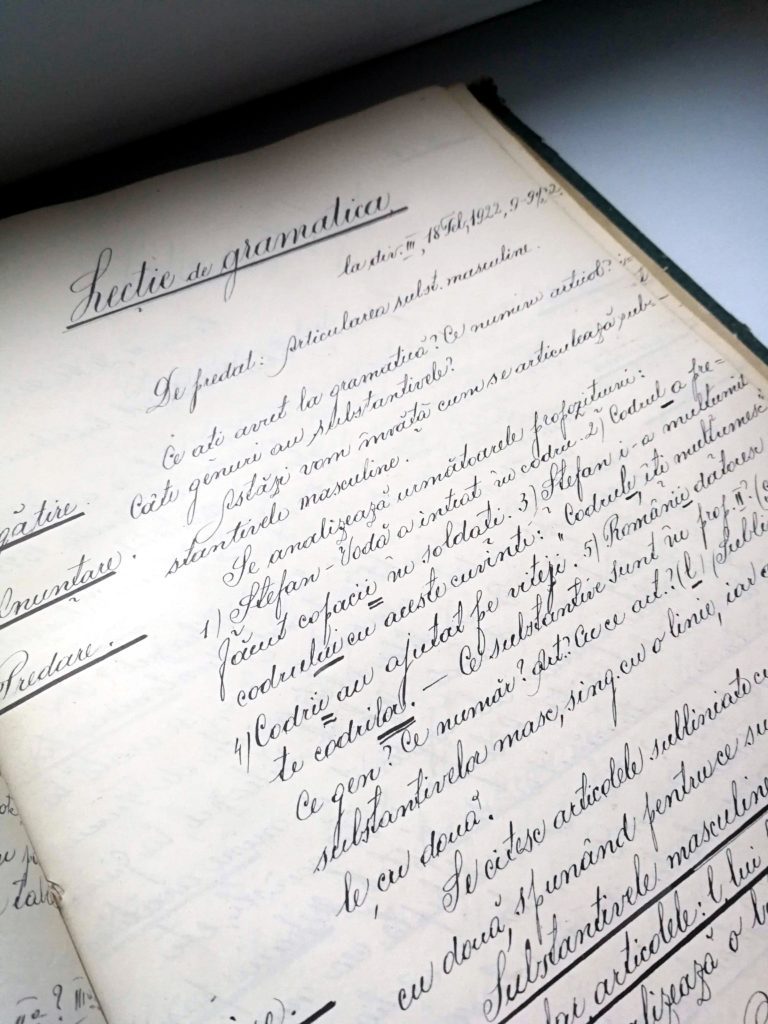 Lecție de gramatica
la div. III, 18 Feb, 1922, 9-9 1/2.
De predat: Articularea subst. masculine.
Ce ați avut la gramatică? Ce numim articol?
Câte genuri au substantivele?
Astăzi vom învăță cum se articulează sub-
stantivele masculine.
gătire.
Enunțare.
Predare.
Se analizează următoarele propozițiuni:
1) Ștefan-Vodă a intrat în codru. 2) Codrul a pre-
făcut copacii în soldați. 3) Ștefan i-a mulțumit
codrului cu aceste cuvinte: "Codrule îți mulțumesc
4) Codrii au ajutat pe viteji. 5) Românii datoresc
te codrilor. — Ce substantive sunt în prop. II?
Ce gen? Ce număr? Art? Cu ce art.? (l) (Subli
substantivelor masc, sing. cu o linie, iar
le, cu două.
Se citesc articolele subliniate cu
cu două, spunând pentru ce su
Substantivele masculine
articolele: l, lui